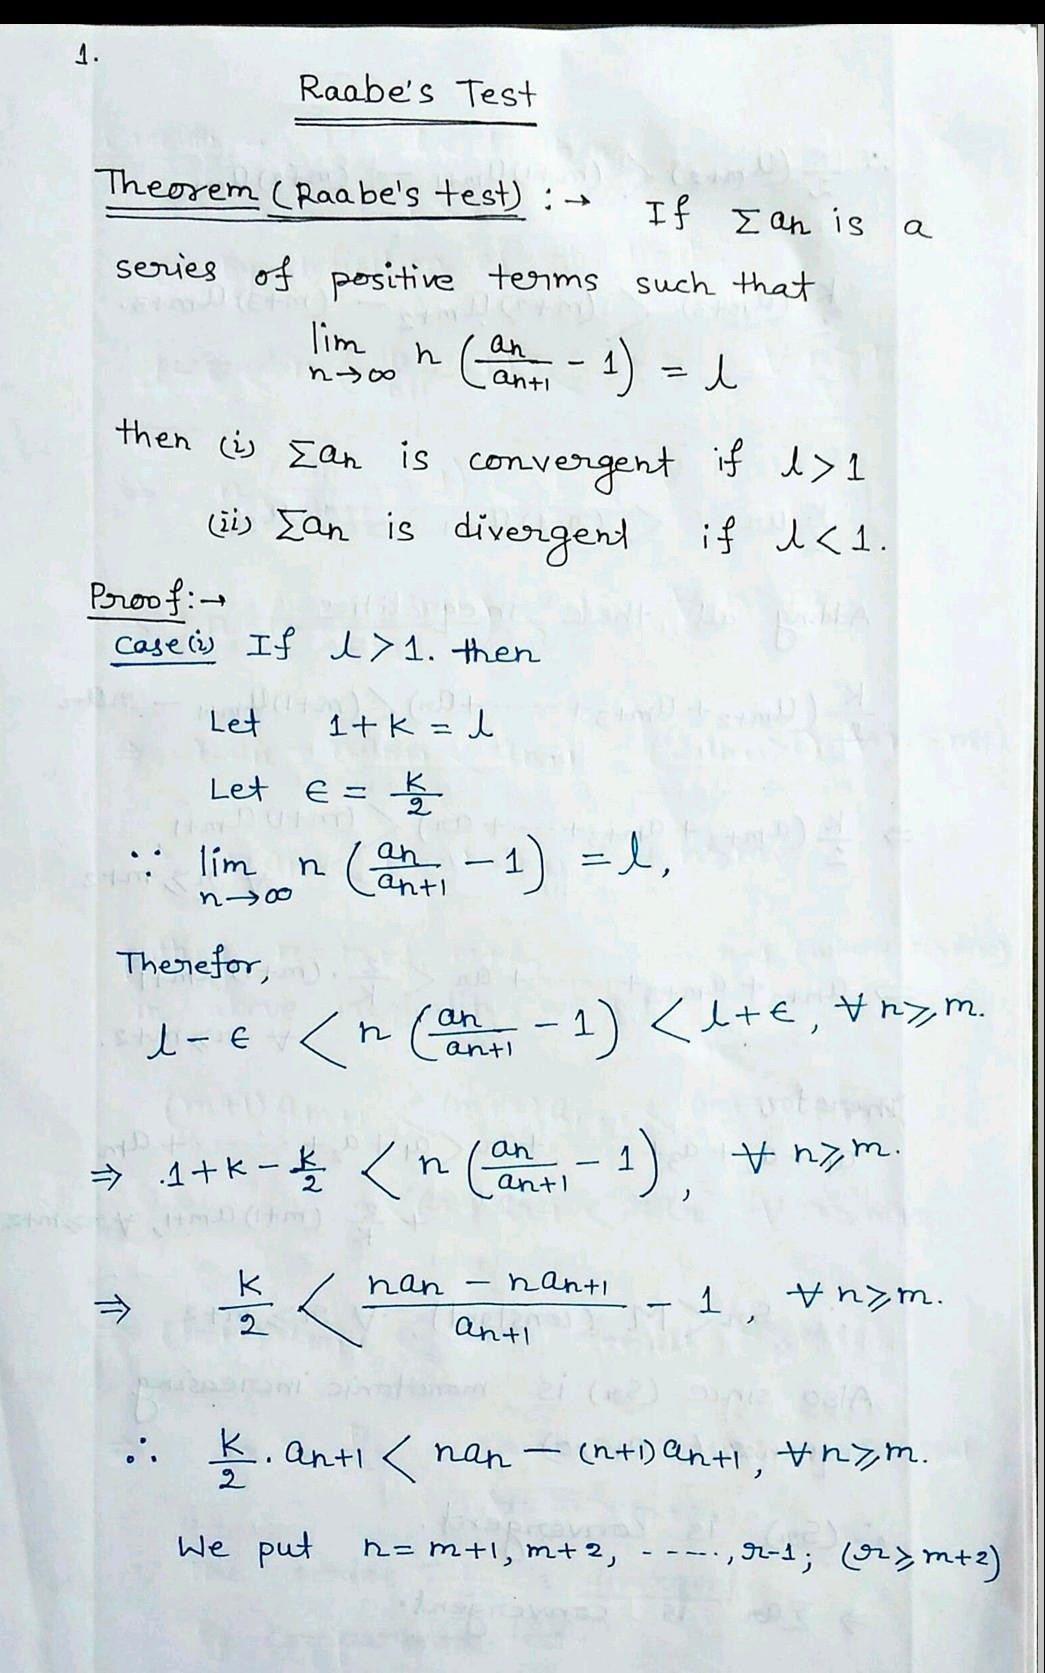 1.
Raabe's Test
Theorem (Raabe's test) :→ If Σan is a
series of positive terms such that
lim n→∞ n (an/an+1 - 1) = l
then (i) Σan is convergent if l > 1
(ii) Σan is divergent if l < 1.
Proof:→
Case(i) If l > 1. then
Let 1+k = l
Let ϵ = k/2
∵ lim n→∞ n (an/an+1 - 1) = l,
Therefor,
l - ϵ < n (an/an+1 - 1) < l + ϵ, ∀ n ⩾ m.
⇒ .1+k - k/2 < n (an/an+1 - 1), ∀ n ⩾ m.
⇒ k/2 < (nan - nan+1)/an+1 - 1, ∀ n ⩾ m.
∴ k/2 . an+1 < nan - (n+1)an+1, ∀ n ⩾ m.
We put n = m+1, m+2, -----, r-1; (r ⩾ m+2)